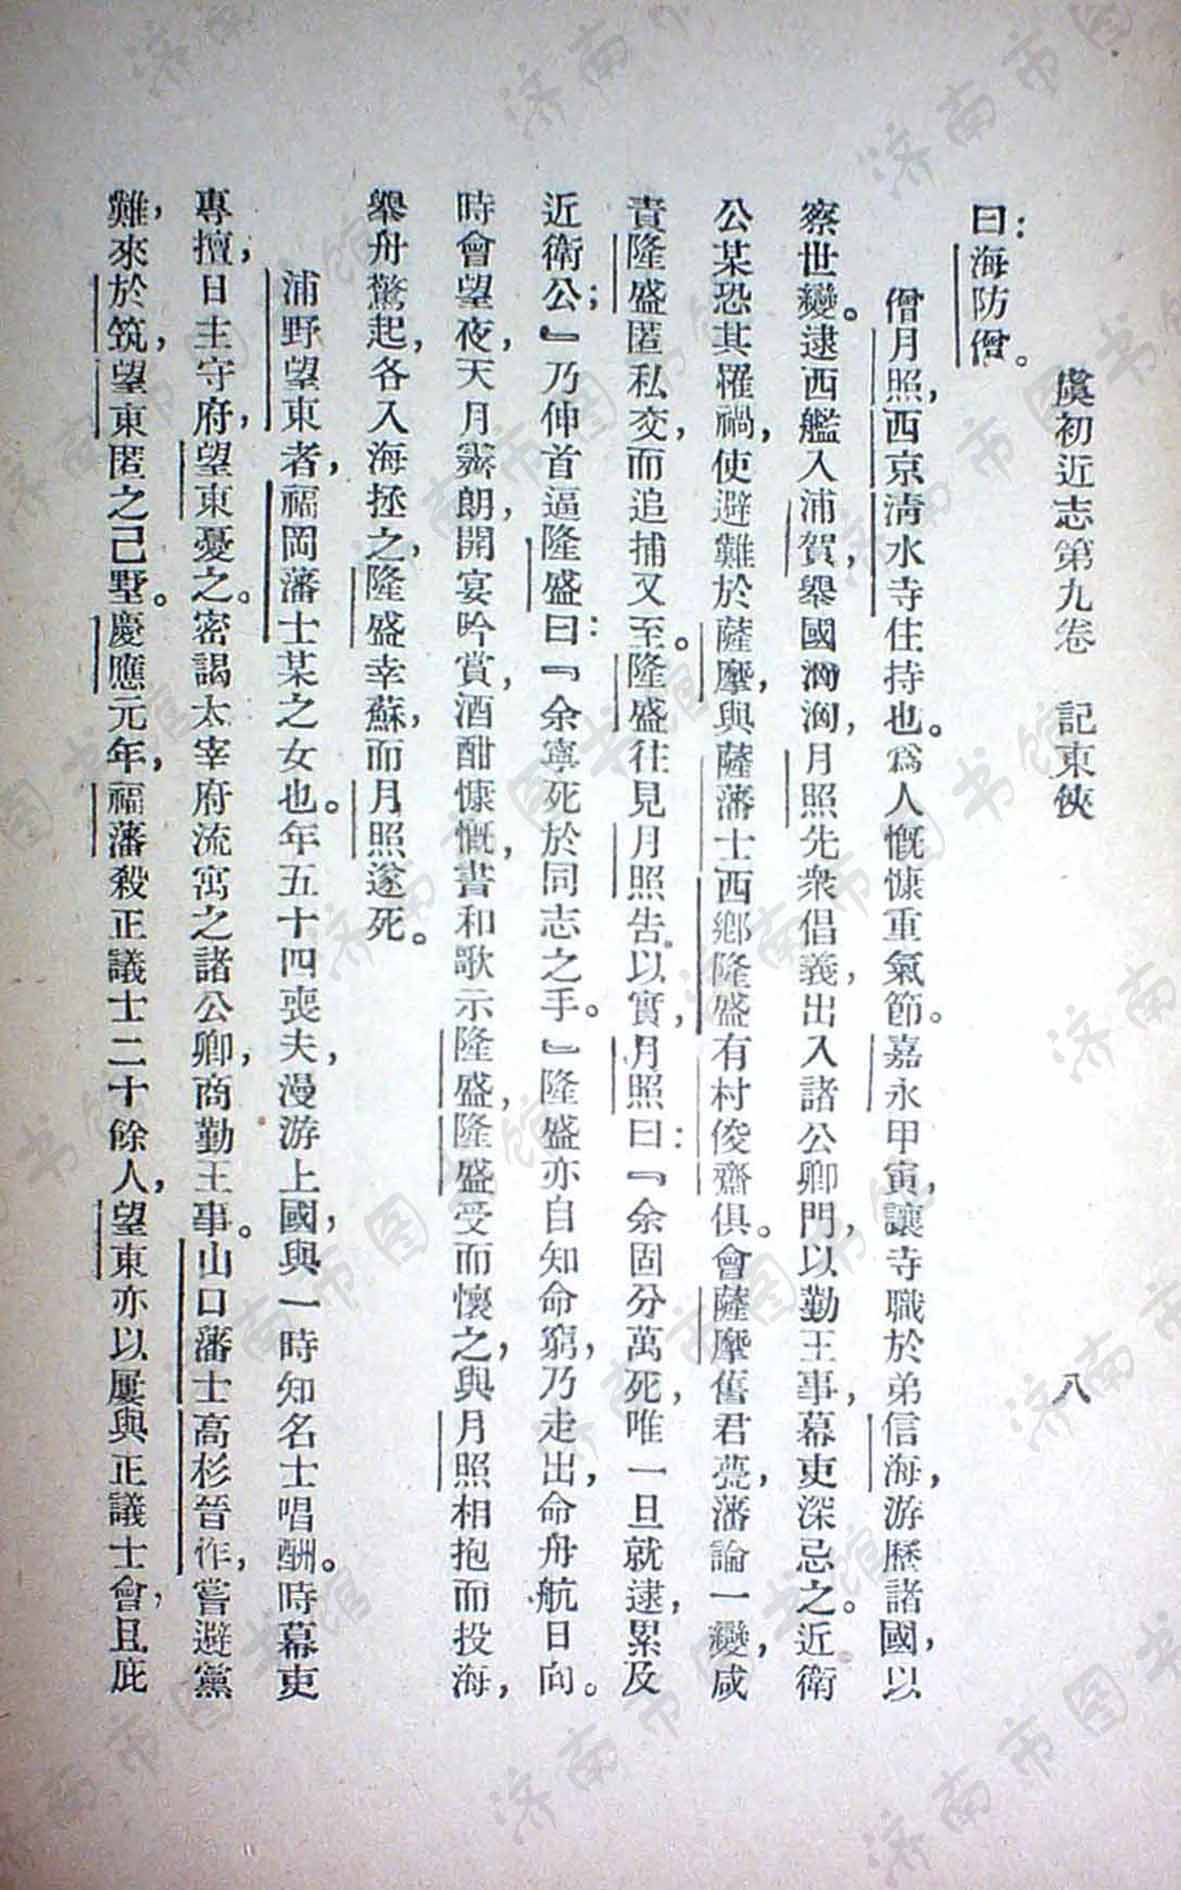 虞初近志第九卷　記東俠　八
曰：海防僧。
僧月照，西京淸水寺住持也。爲人慨慷重氣節。嘉永甲寅，讓寺職於弟信海，游歷諸國，以
察世變。逮西艦入浦賀，舉國洶洶，月照先衆倡義，出入諸公卿門，以勤王事，幕吏深忌之。近衛
公某恐其罹禍，使避難於薩摩，與薩藩士西鄕隆盛有村俊齋俱。會薩摩舊君薨，藩論一變，咸
責隆盛匿私交，而追捕又至。隆盛往見月照告以實，月照曰：『余固分萬死，唯一旦就逮，累及
近衛公；』乃伸首逼隆盛曰：『余寧死於同志之手。』隆盛亦自知命窮，乃走出，命舟航日向。
時會望夜，天月霽朗，開宴吟賞，酒酣慷慨，書和歌示隆盛，隆盛受而懷之，與月照相抱而投海，
舉舟驚起，各入海拯之，隆盛幸蘇，而月照遂死。
浦野望東者，福岡藩士某之女也。年五十四喪夫，漫游上國，與一時知名士唱酬。時幕吏
專擅，日主守府，望東憂之。密謁太宰府流寓之諸公卿，商勤王事。山口藩士高杉晉作，嘗避黨
難，來於筑，望東匿之己墅。慶應元年，福藩殺正議士二十餘人，望東亦以屢與正議士會，且庇
济南市图书馆